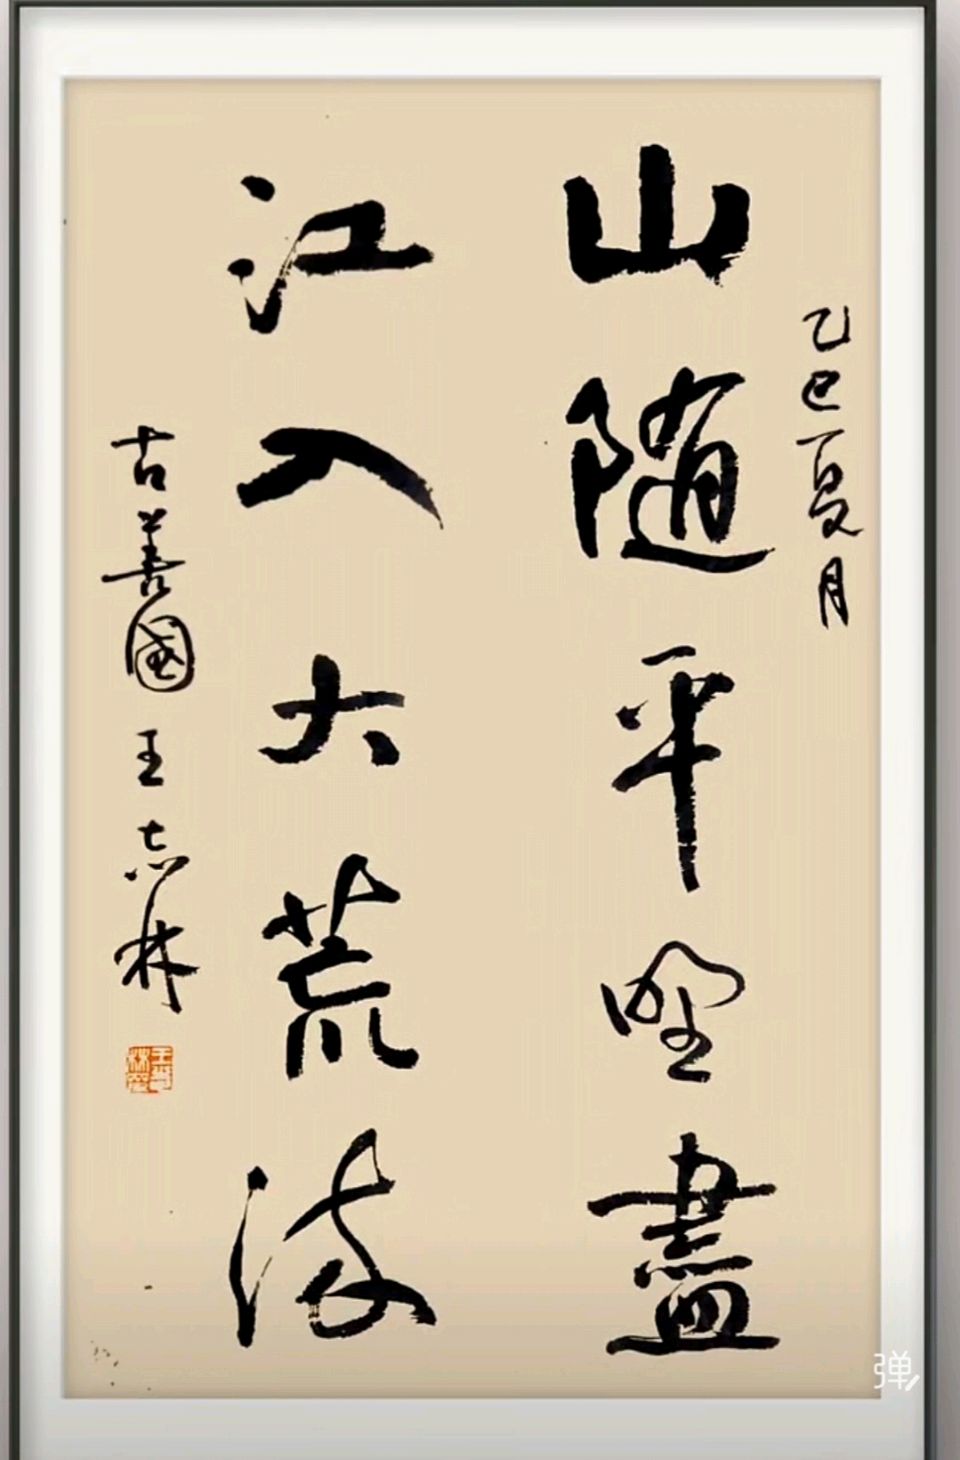 乙巳夏月
山随平野盡
江入大荒流
古善國王志林
弹